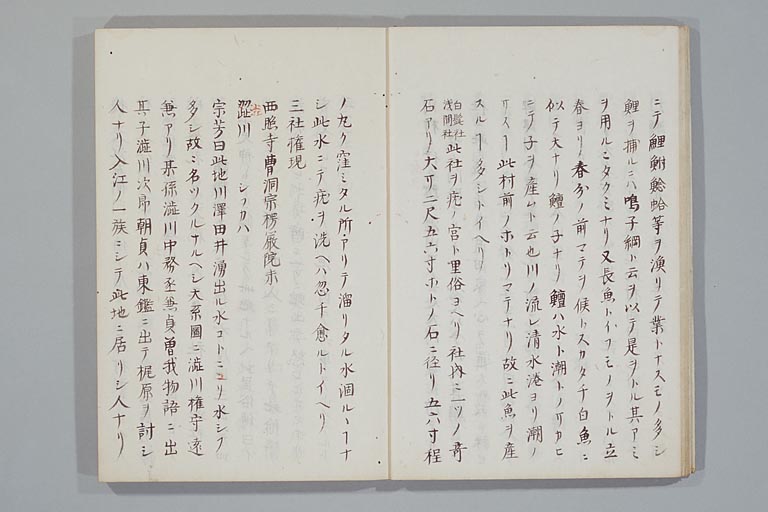 ニテ鯉鮒鯰蛤等ヲ漁リテ業トナスモノ多シ
鯉ヲ捕ルニハ鳴子綱ト云ヲ以テ是ヲトル其アミ
ヲ用ルニタクミナリ又長魚トイフモノヲトル立
春ヨリ春分ノ前マテヲ候トスカタチ白魚ニ
似テ大ナリ鱣ノ子ナリ鱣ハ水ト潮トノ
ニテ子ヲ産ムト云也川ノ流レ清水港ヨリ潮ノ
此村前ノホトリマテナリ故ニ此魚ヲ産
スルヿ多シトイヘリ
白髭社
浅間社
此社ヲ疣ノ宮ト里俗ヨヘリ社内ニ一ツノ奇
石アリ大サ二尺五六寸ホトノ石ニ径リ五六寸程
ノ丸ク窪ミタル所アリテ溜リタル水涸ルヽヿナ
シ此水ニテ疣ヲ洗ヘハ忽チ愈ルトイヘリ
三社権現
西照寺曹洞宗楞厳院末
澁川 シフカハ
宗芳曰此地川澤田井湧出ル水コトニヨリ水シフ
多シ故ニ名ツクルナルヘシ大系圖ニ澁川権守遠
兼アリ其孫澁川中務丞兼貞曽我物語ニ出
其子澁川次郎朝貞ハ東鑑ニ出テ梶原ヲ討シ
人ナリ入江ノ一族ニシテ此地ニ居リシ人ナリ